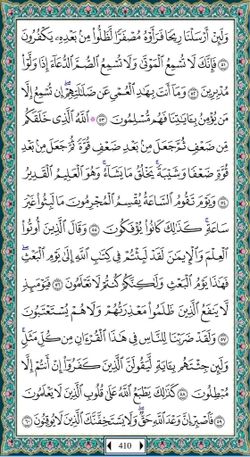 وَلَئِنْ أَرْسَلْنَا رِيحًا فَرَأَوْهُ مُصْفَرًّا لَّظَلُّوا۟ مِنۢ بَعْدِهِۦ يَكْفُرُونَ
٥١ فَإِنَّكَ لَا تُسْمِعُ ٱلْمَوْتَىٰ وَلَا تُسْمِعُ ٱلصُّمَّ ٱلدُّعَآءَ إِذَا وَلَّوْا۟
مُدْبِرِينَ ٥٢ وَمَآ أَنتَ بِهَـٰدِ ٱلْعُمْىِ عَن ضَلَـٰلَتِهِمْ ۖ إِن تُسْمِعُ إِلَّا
مَن يُؤْمِنُ بِـَٔايَـٰتِنَا فَهُم مُّسْلِمُونَ ٥٣ ۞ ٱللَّهُ ٱلَّذِى خَلَقَكُم
مِّن ضَعْفٍ ثُمَّ جَعَلَ مِنۢ بَعْدِ ضَعْفٍ قُوَّةً ثُمَّ جَعَلَ مِنۢ بَعْدِ
قُوَّةٍ ضَعْفًا وَشَيْبَةً ۚ يَخْلُقُ مَا يَشَآءُ ۖ وَهُوَ ٱلْعَلِيمُ ٱلْقَدِيرُ
٥٤ وَيَوْمَ تَقُومُ ٱلسَّاعَةُ يُقْسِمُ ٱلْمُجْرِمُونَ مَا لَبِثُوا۟ غَيْرَ
سَاعَةٍ ۚ كَذَٰلِكَ كَانُوا۟ يُؤْفَكُونَ ٥٥ وَقَالَ ٱلَّذِينَ أُوتُوا۟
ٱلْعِلْمَ وَٱلْإِيمَـٰنَ لَقَدْ لَبِثْتُمْ فِى كِتَـٰبِ ٱللَّهِ إِلَىٰ يَوْمِ ٱلْبَعْثِ ۖ
فَهَـٰذَا يَوْمُ ٱلْبَعْثِ وَلَـٰكِنَّكُمْ كُنتُمْ لَا تَعْلَمُونَ ٥٦ فَيَوْمَئِذٍ
لَّا يَنفَعُ ٱلَّذِينَ ظَلَمُوا۟ مَعْذِرَتُهُمْ وَلَا هُمْ يُسْتَعْتَبُونَ
٥٧ وَلَقَدْ ضَرَبْنَا لِلنَّاسِ فِى هَـٰذَا ٱلْقُرْءَانِ مِن كُلِّ مَثَلٍ ۚ
وَلَئِن جِئْتَهُم بِـَٔايَةٍ لَّيَقُولَنَّ ٱلَّذِينَ كَفَرُوٓا۟ إِنْ أَنتُمْ إِلَّا
مُبْطِلُونَ ٥٨ كَذَٰلِكَ يَطْبَعُ ٱللَّهُ عَلَىٰ قُلُوبِ ٱلَّذِينَ لَا يَعْلَمُونَ
٥٩ فَٱصْبِرْ إِنَّ وَعْدَ ٱللَّهِ حَقٌّ ۖ وَلَا يَسْتَخِفَّنَّكَ ٱلَّذِينَ لَا يُوقِنُونَ ٦٠
410